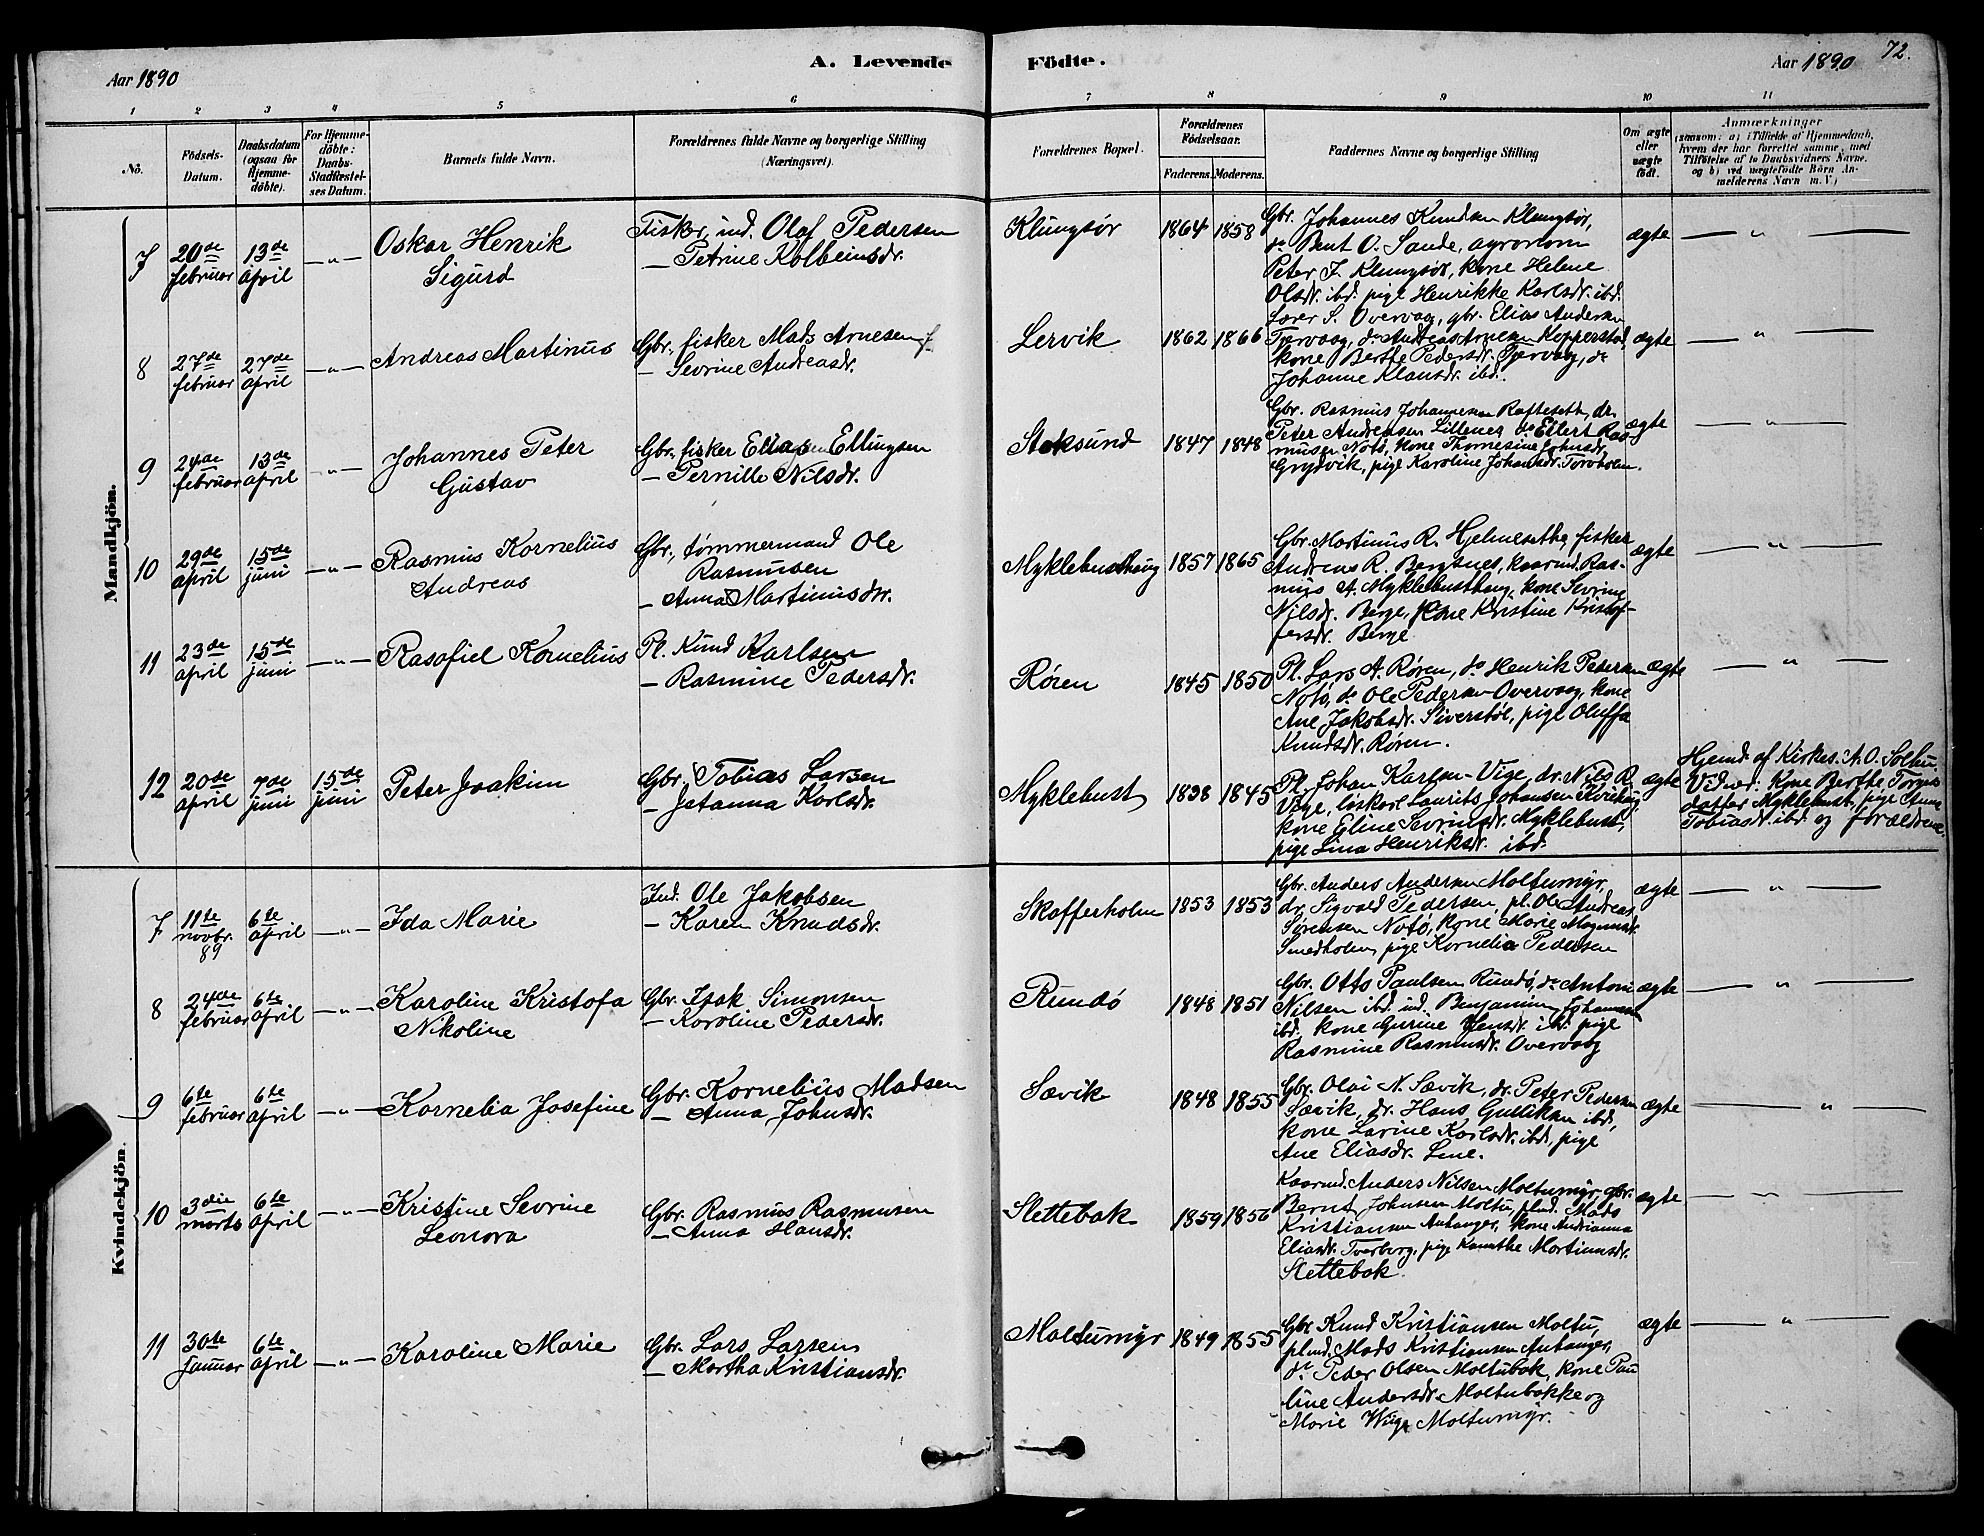 Aar 1890
A. Levende
Födte.
Aar 1890
72.
1 2 3 4 5 6 7 8 9 10 11
No.
Födsels-
Datum.
Daabsdatum
(ogsaa for
Hjemme-
döbte).
For Hjemme-
döbte:
Daabs-
Stadfæstel-
ses Datum.
Barnets fulde Navn.
Forældrenes fulde Navne og borgerlige Stilling
(Næringsvei).
Forældrenes Bopæl.
Forældrenes
Födselsaar.
Faderens. Moderens.
Faddernes Navne og borgerlige Stilling
Om ægte
eller
uægte
födt.
Anmærkninger
(saasom: a) i Tilfælde af Hjemmedaab,
hvem der har forrettet samme, med
Tilföielse af to Daabsvidners Navne.
og b) ved uægtefödte Börn An-
melderens Navn m. V.)
Mandkjön.
7
20de
februar
13de
april
— „ —
Oskar Henrik
Sigurd
Fisker, ind. Olaf Pedersen
— Petrine Kolbeinsdr.
Klungsör
1864 1858
Gbr. Johannes Knudsen Klungsör,
do Bent O. Sande, agronom
Peter J. Klungsör, kone Helene
Olsdr. ibd. pige Henrikke Karlsdr. ibd.
ægte
— „ —
8
27de
februar
27de
april
— „ —
Andreas Martinus
Gbr. fisker Mads Arnesen
— Sevrine Andreasdr.
Lervik
1862 1866
Lærer S. Overvaag, gbr. Elias Andersen
Tjervaag, do Andreas Arnesen Kopperstad
kone Berthe Pedersdr. Tjervaag, do
Johanne Klausdr. ibd.
ægte
— „ —
9
24de
februar
13de
april
— „ —
Johannes Peter
Gustav
Gbr. fisker Elias Ellingsen
— Pernille Nilsdr.
Stoksund
1847 1848
Gbr. Rasmus Johannesen Rafteseth, do.
Peter Andreasen Lillenes do Ellert Ras-
musen Notö, kone Thomesine Johnsdr.
Grydvik, pige Karoline Johansdr. Torvholm.
ægte
— „ —
10
29de
april
15de
juni
— „ —
Rasmus Kornelius
Andreas
Gbr. tømmermand Ole
Rasmusen
— Anna Martinusdtr.
Myklebusthaug
1857 1865
Gbr. Martinus R. Hjelmesethe, fisker
Andreas R. Bergsnes, kaarmd. Ras-
mus A. Myklebusthaug, kone Sevrine
Nilsdr. Berge, kone Kristine Kristof-
fersdr. Berge
ægte
— „ —
11
23de
april
15de
juni
— „ —
Rasofiel Kornelius
Pl. Knud Karlsen
— Rasmine Pedersdr.
Røren
1845 1850
Pl. Lars A. Røren, do Henrik Pedersen
Notö, do Ole Pedersen Overvaag, kone
Ane Jakobsdr. Siverstøl, pige Oluffa
Knudsdr. Røren.
ægte
— „ —
12
20de
april
7de
juni
15de
juni
Peter Joakim
Gbr. Tobias Larsen
— Jetanna Karlsdr.
Myklebust
1838 1845
Pl. Johan Karlsen Vige, do. Nils R.
Vige, fiskerk. Laurits Johansen Kvihaug
kone Eline Sevrinsdr. Myklebust,
pige Lina Henriksdr. ibd.
ægte
Hjemd. af Kirkes. A. O. Solhu.
Vidner: Kone Berthe Torges
datter Myklebust, pige Anne
Tobiasdr. ibd. og forældrene.
Kvindekjön.
7
11te
novbr.
89
6te
april
— „ —
Ida Marie
Ind. Ole Jakobsen
— Karen Knudsdr.
Skafferholm
1853 1853
Gbr. Anders Andersen Moltumyr,
dr. Sigvald Pedersen, pl. Ole Andreas
Sørensen Notö, kone Marie Magnusdr.
Smedholm, pige Kornelia Pedersen
ægte
— „ —
8
24de
februar
6te
april
— „ —
Karoline Kristofa
Nikoline
Gbr. Isak Simonsen
— Karoline Pedersdr.
Rundö
1848 1851
Gbr. Otto Paulsen Rundö, do Antoni
Nilsen ibd. ind. Benjamin Johannsen
ibd. kone Gurine Jensdr. ibd. pige
Rasmine Rasmusdr. Overvaag
ægte
— „ —
9
6te
februar
6te
april
— „ —
Kornelia Josefine
Gbr. Kornelius Madsen
— Anna Johnsdr.
Sævik
1848 1855
Gbr. Olai N. Sævik, do. Peter Pedersen
Sævik, dr. Hans Gulliksen ibd,
kone Larine Karlsdr. ibd, pige
Ane Eliasdr. Line.
ægte
— „ —
10
3die
marts
6te
april
— „ —
Kristine Sevrine
Leonora
Gbr. Rasmus Rasmusen
— Anna Hansdr.
Slettebak
1859 1856
Kaarmd. Anders Nilsen Moltumyr, gbr.
Bernt Johnsen Moltu, plmd. Mads
Kristiansen Anhanger, kone Andrianna
Eliasdr. Tverberg, pige Kamthe Martinusdr.
Slettebak.
ægte
— „ —
11
30te
januar
6te
april
— „ —
Karoline Marie
Gbr. Lars Larsen
— Martha Kristiansdr.
Moltumyr
1849 1855
Gbr. Knud Kristiansen Moltu,
plmd. Mads Kristiansen Anhanger,
do Peder Olsen Moltubak, kone Pau
line Andersdr. Moltubakke og
Marie Wiig Moltumyr.
ægte
— „ —